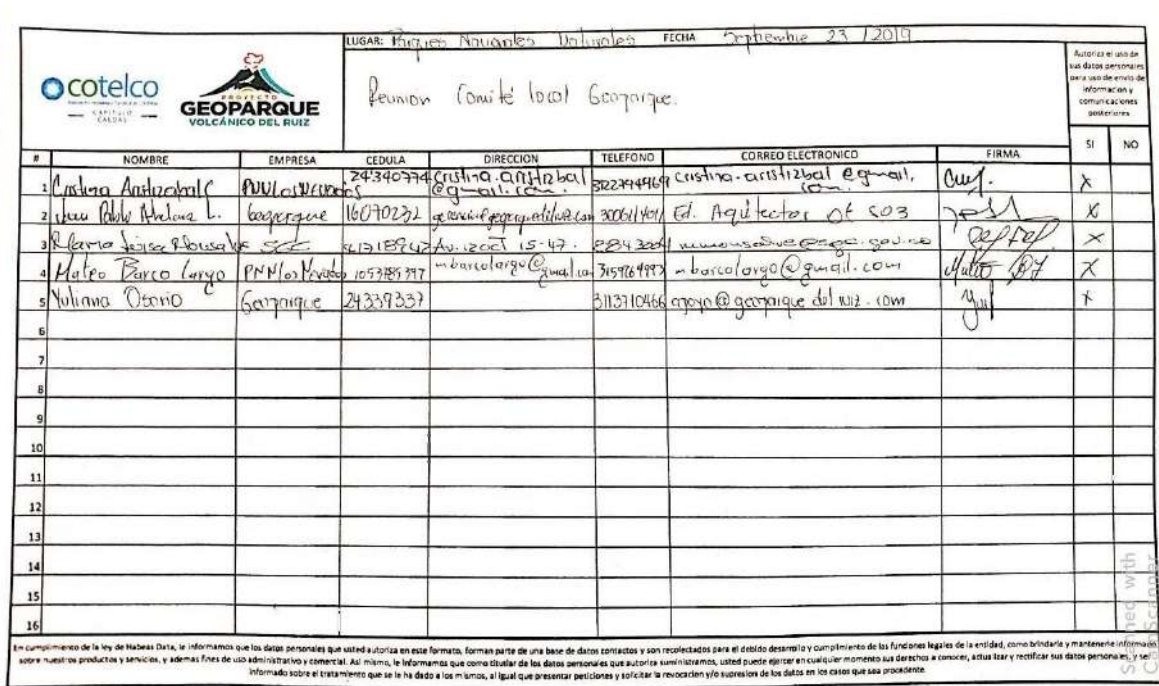 LUGAR: Parques Naturales FECHA Septiembre 23 / 2019
cotelco
CAPITULO
CALDAS
PROYECTO
GEOPARQUE
VOLCÁNICO DEL RUIZ
Reunion Comité local Geoparque.
Autoriza el uso de
sus datos personales
para uso de envio de
informacion y
comunicaciones
posteriores
SI NO
# NOMBRE EMPRESA CEDULA DIRECCION TELEFONO CORREO ELECTRONICO FIRMA
1 Cristina PNN Los Nevados 24340774 cristina.aristizbal @gmail.com. 3122794969 cristina.aristizbal @gmail.com X
2 Juan Pablo L. Geoparque 16070232 Ed. Of 503 X
3 SGC Av. 12 Oct 15-47. X
4 Mateo Barco Largo PNN los Nevados mbarcolargo@gmail.com mbarcolargo@gmail.com X
5 Yuliana Osorio Geoparque 24339337 3113710466 apoyo@geoparque del ruiz.com X
6
7
8
9
10
11
12
13
14
15
16
En cumplimiento de la ley de Habeas Data, le informamos que los datos personales que usted autoriza en este formato, forman parte de una base de datos contactos y son recolectados para el debido desarrollo y cumplimiento de las funciones legales de la entidad, como brindarle y mantenerle informado
sobre nuestros productos y servicios, y ademas fines de uso administrativo y comercial. Asi mismo, le informamos que como titular de los datos personales que autoriza suministrarnos, usted puede ejercer en cualquier momento sus derechos a conocer, actualizar y rectificar sus datos personales, y ser
informado sobre el tratamiento que se le ha dado a los mismos, al igual que presentar peticiones y solicitar la revocacion y/o supresion de los datos en los casos que sea procedente.
Scanned with
CamScanner